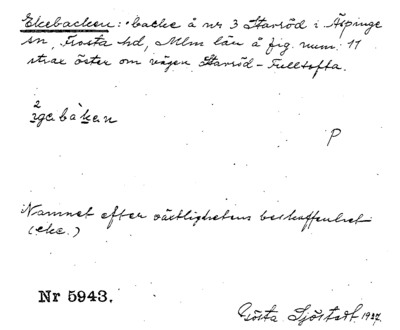 Ekebacken: backe å nr 3 Stavröd i Äspinge
sn, Frosta hd, Mlm län å fig. num. 11
strax öster om vägen Stavröd - Fulltofta.
2
ɜgabakan
P
Namnet efter växtlighetens beskaffenhet
(eke.)
Nr 5943.
Gösta Sjöstedt. 1927.